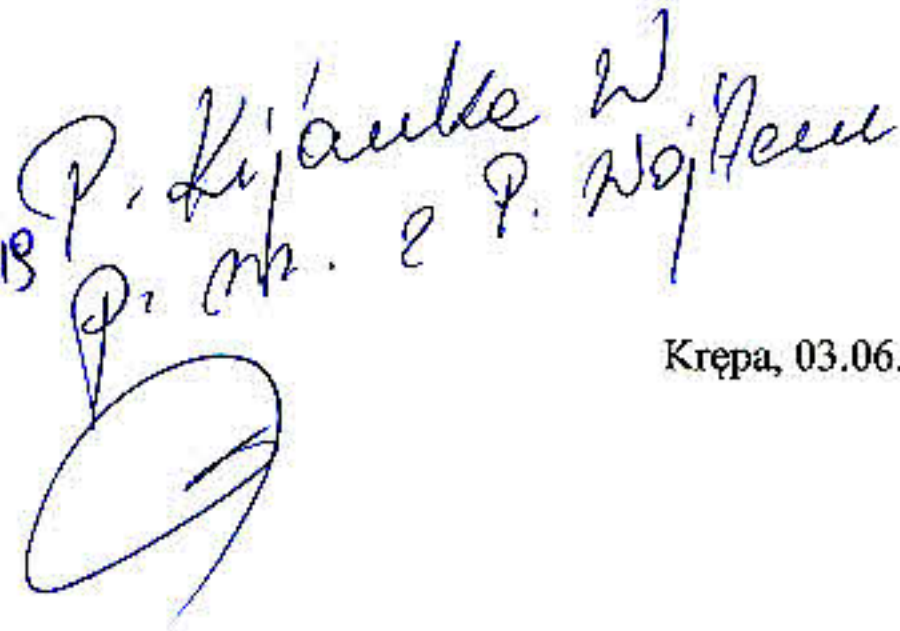 P. Kijanka W
P. z P. Wójtem
Krępa, 03.06.